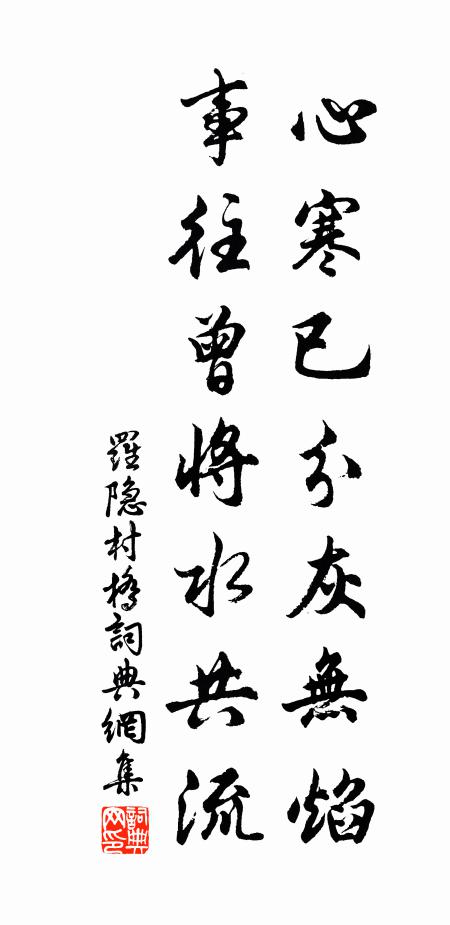 心寒已分灰無焰
事往曾將水共流
羅隐村橋詞典網集
詞典網印